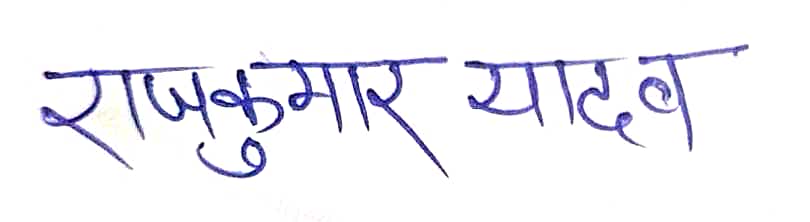 राजकुमार यादव